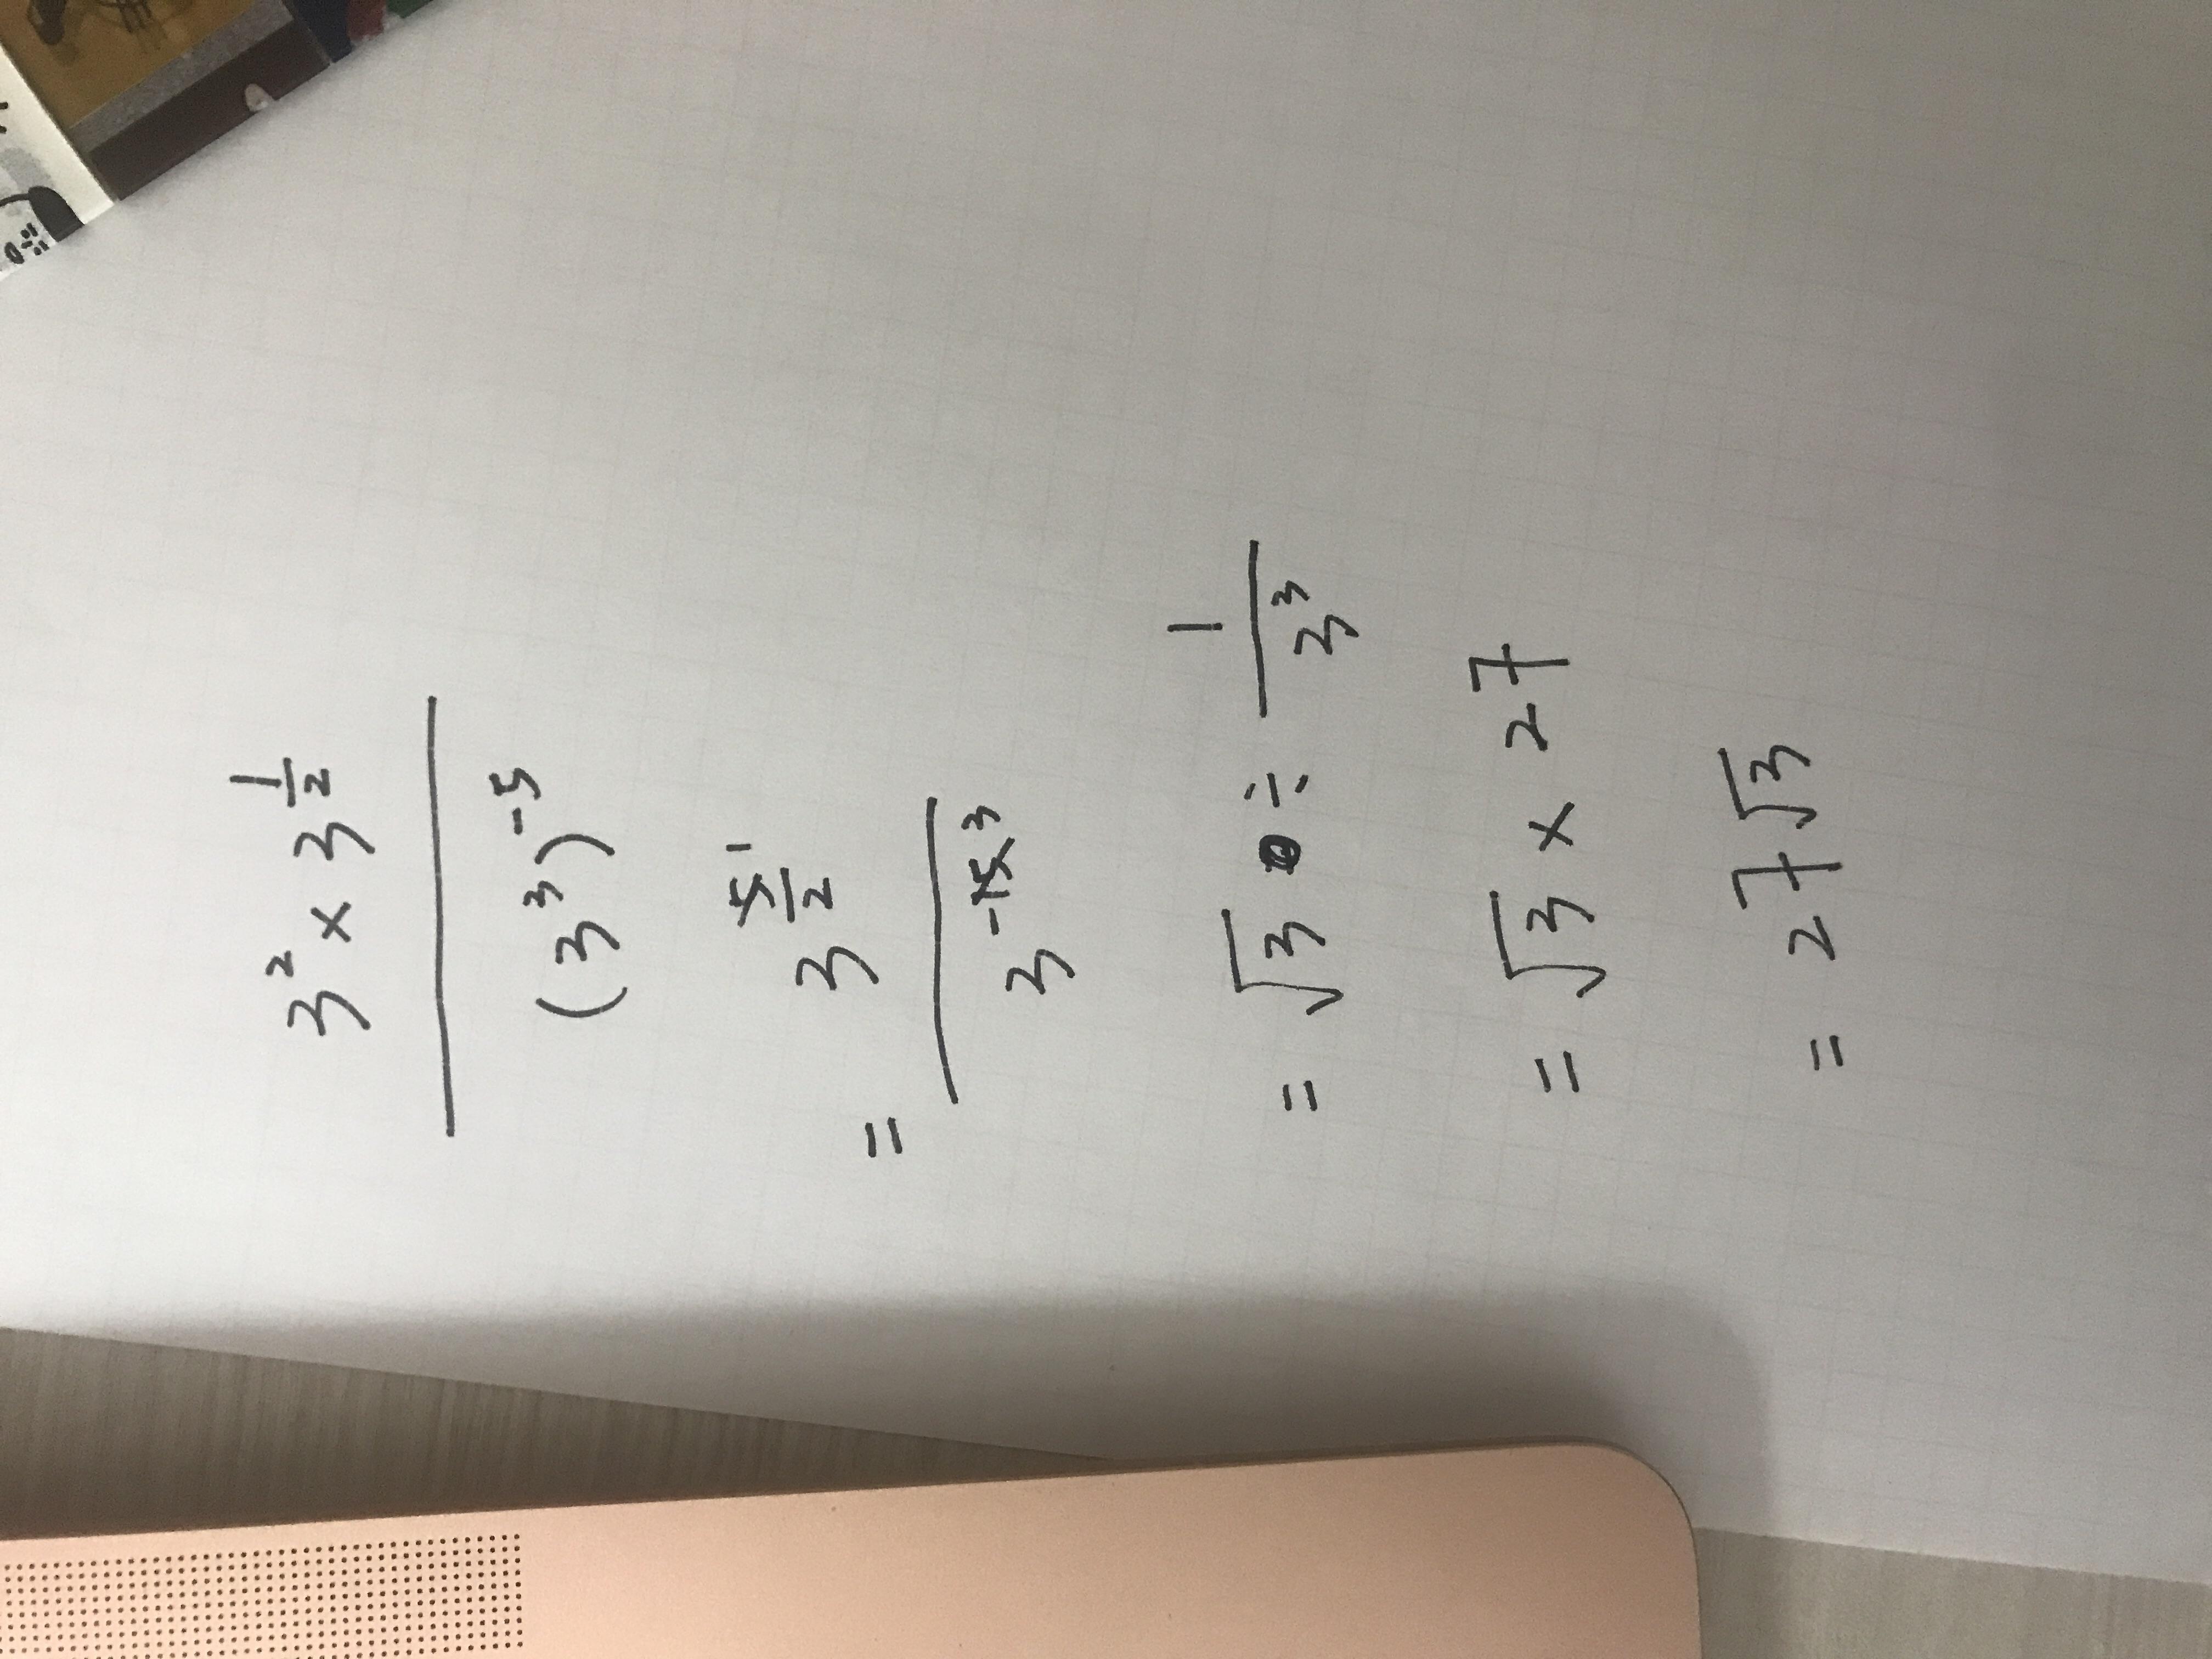 3² × 3^(1/2)
(3³)^-5
= 3^(5/2) 1
3^-15 3
= √3 ÷ 1/3³
= √3 × 27
= 27√3